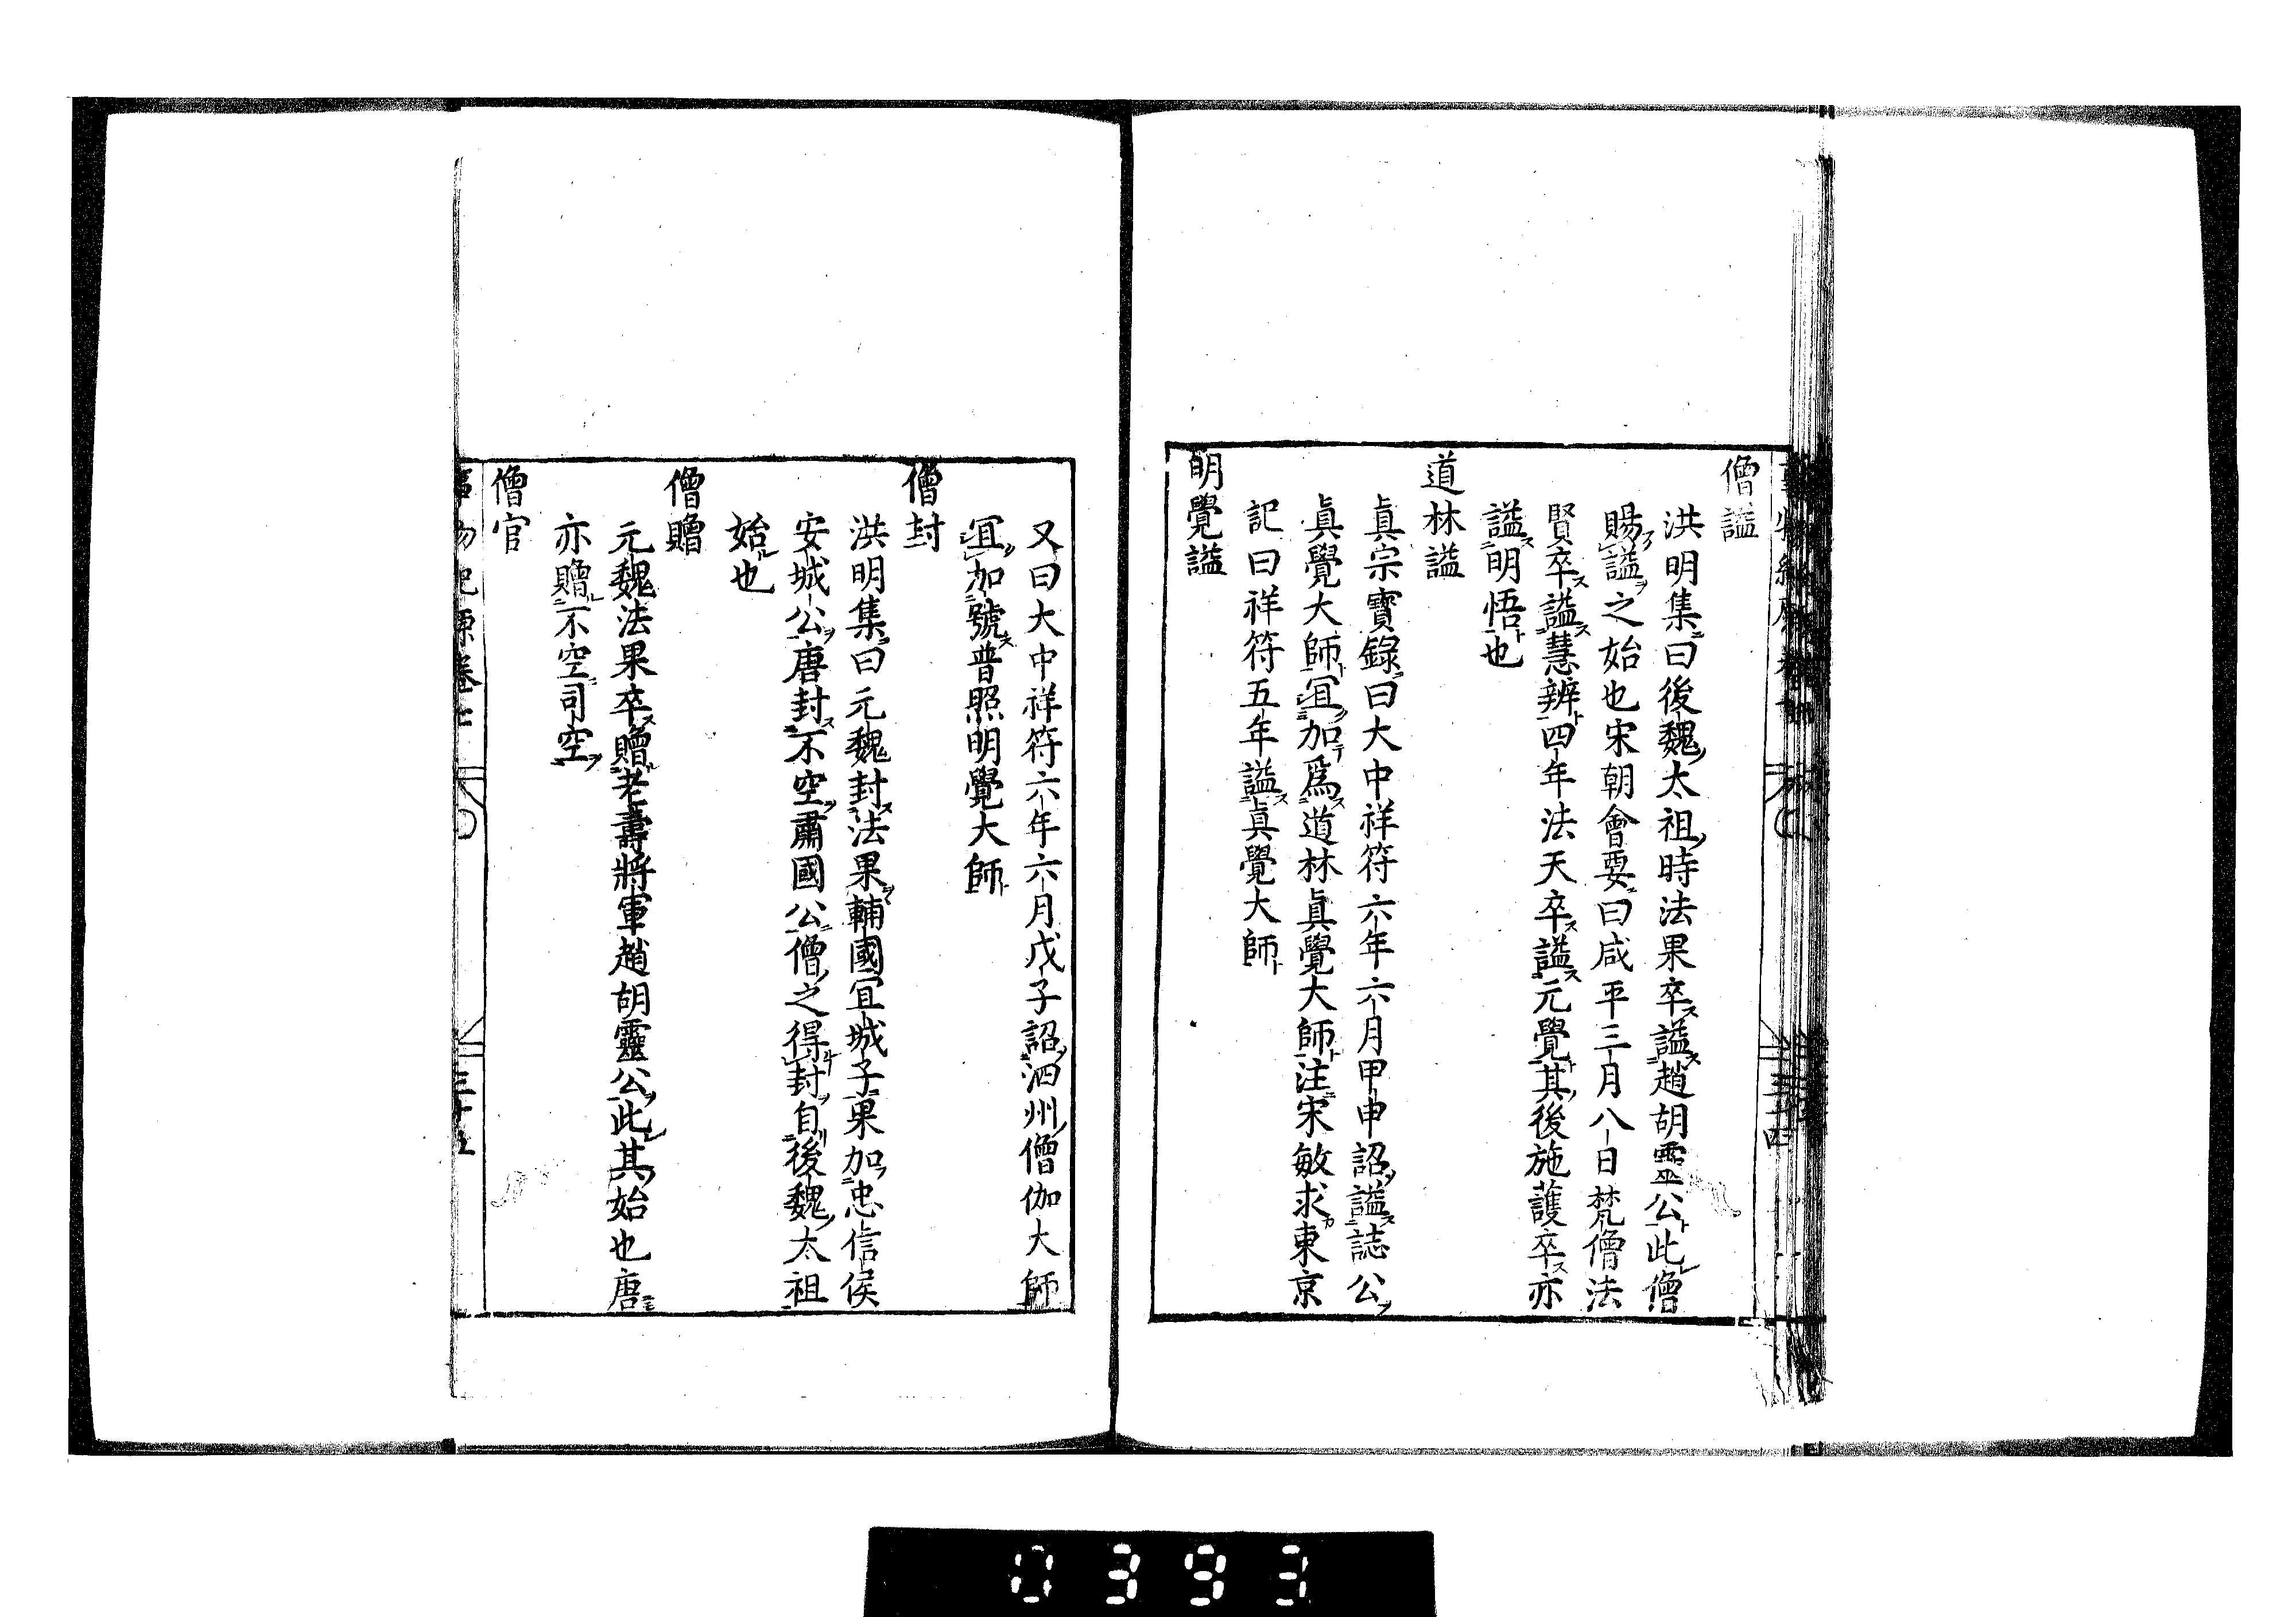 僧謚
洪明集曰後魏太祖時法果卒謚趙胡靈公此僧
賜謚之始也宋朝會要曰咸平三月八日梵僧法
賢卒謚慧辨四年法天卒謚元覺其後施護卒亦
謚明悟也
道林謚
眞宗寶錄曰大中祥符六年六月甲申詔謚誌公
眞覺大師冝加爲道林眞覺大師注宋敏求東京
記曰祥符五年謚眞覺大師
明覺謚
又曰大中祥符六年六月戊子詔泗州僧伽大師
冝加號普照明覺大師
僧封
洪明集曰元魏封法果輔國冝城子果加忠信侯
安城公唐封不空肅國公僧之得封自後魏太祖
始也
僧贈
元魏法果卒贈老壽將軍趙胡靈公此其始也唐
亦贈不空司空
僧官
事物紀原卷七
三十五
0393